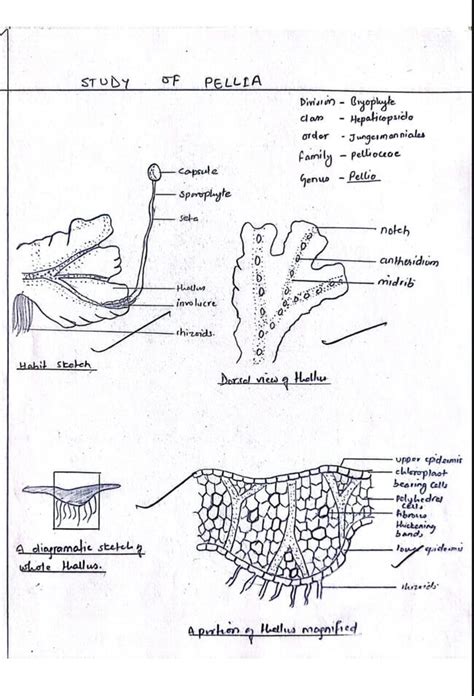 STUDY OF PELLIA
Division - Bryophyte
class - Hepaticopsida
order - Jungermanniales
family - Pelliaceae
Genus - Pellia
capsule
sporophyte
seta
thallus
involucre
rhizoids.
Habit sketch
notch
antheridium
midrib
Dorsal view of thallus
A diagramatic sketch of
whole thallus.
upper epidermis
chloroplast
bearing cells
polyhedral
cells
fibrous
thickening
bands
lower epidermis
rhizoids
A portion of thallus magnified